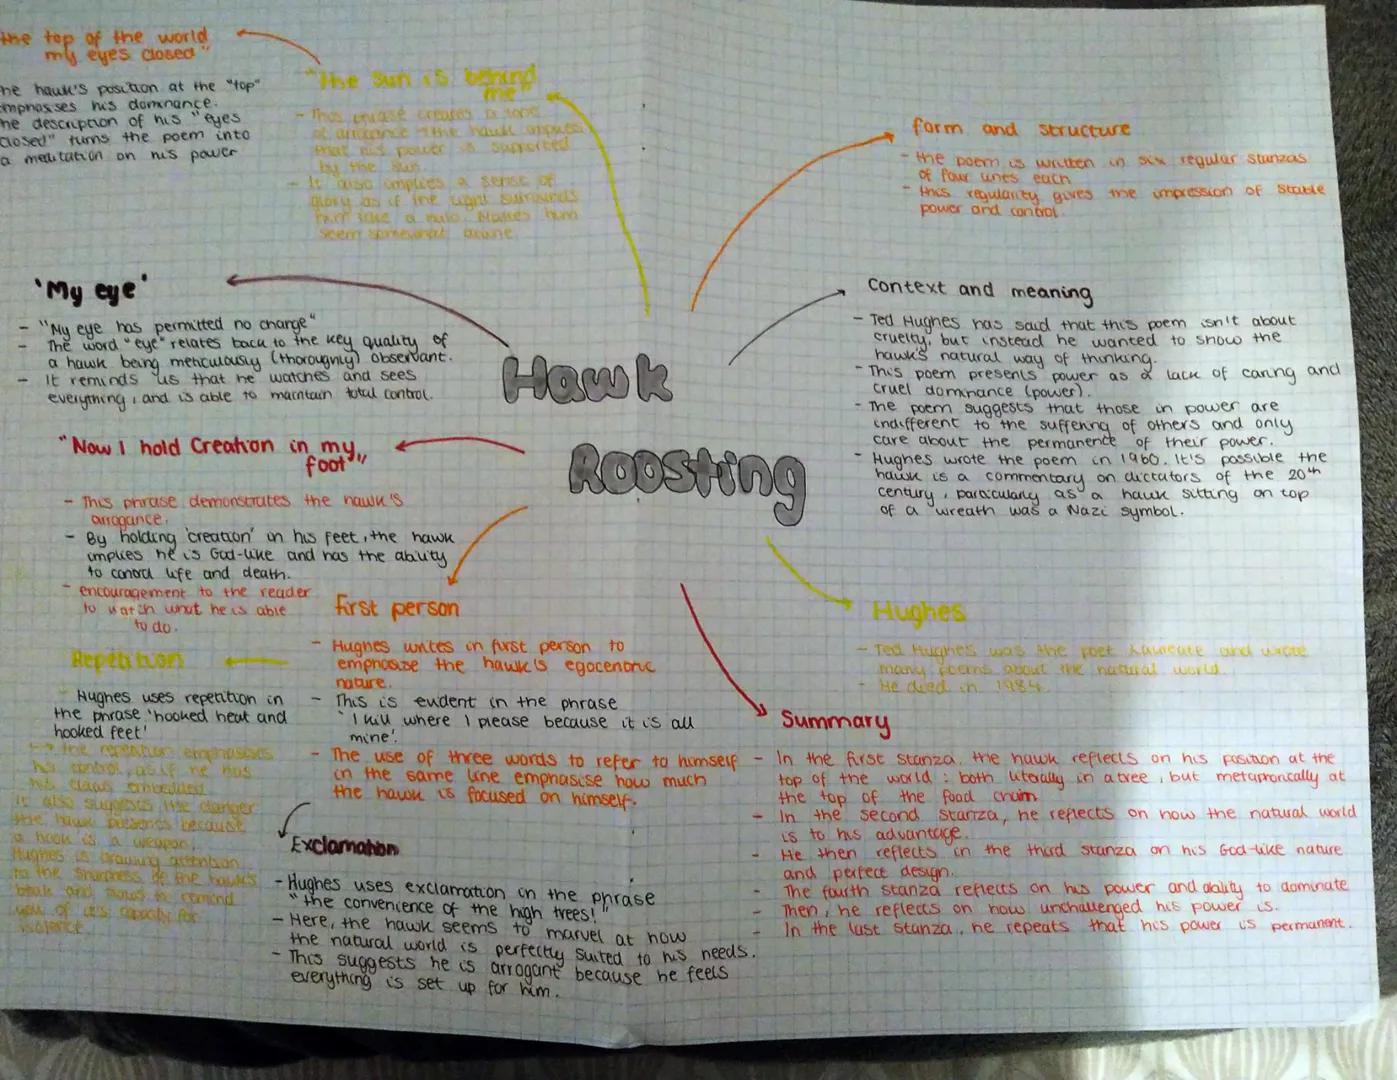 the top of the world
my eyes closed"
he hawk's position at the "top"
emphasises his dominance.
he description of his "eyes
closed" turns the poem into
a meditation on his power
"The Sun is behind
me"
- This phrase creates a tone
of arrogance - the hawk implies
that his power is supported
by the sun.
- It also implies a sense of
glory as if the light surrounds
him like a halo. Makes him
seem somewhat divine.
form and structure
- the poem is written in six regular stanzas
of four lines each.
- this regularity gives the impression of stable
power and control.
'My eye'
- "My eye has permitted no change"
- The word "eye" relates back to the key quality of
a hawk being meticulously (thoroughly) observant.
- It reminds us that he watches and sees
everything, and is able to maintain total control.
Hawk
Roosting
context and meaning
- Ted Hughes has said that this poem isn't about
cruelty, but instead he wanted to show the
hawk's natural way of thinking.
- This poem presents power as a lack of caring and
cruel dominance (power).
- The poem suggests that those in power are
indifferent to the suffering of others and only
care about the permanence of their power.
- Hughes wrote the poem in 1960. It's possible the
hawk is a commentary on dictators of the 20th
century, particularly as a hawk sitting on top
of a wreath was a Nazi symbol.
"Now I hold Creation in my
foot"
- This phrase demonstrates the hawk's
arrogance.
- By holding 'creation' in his feet, the hawk
implies he is God-like and has the ability
to control life and death.
- encouragement to the reader
to watch what he is able
to do.
first person
- Hughes writes in first person to
emphasise the hawk's egocentric
nature.
- This is evident in the phrase
'I kill where I please because it is all
mine'.
- The use of three words to refer to himself
in the same line emphasise how much
the hawk is focused on himself.
Repetition
- Hughes uses repetition in
the phrase 'hooked heat and
hooked feet'
→ the repetition emphasises
his control, as if he has
his claws embedded.
It also suggests the danger
the hawk presents because
a hook is a weapon.
Hughes is drawing attention
to the sharpness of the hawk's
beak and claws to remind
you of it's capacity for
violence.
Exclamation
- Hughes uses exclamation in the phrase
"the convenience of the high trees!"
- Here, the hawk seems to marvel at how
the natural world is perfectly suited to his needs.
- This suggests he is arrogant because he feels
everything is set up for him.
Hughes
- Ted Hughes was the poet Laureate and wrote
many poems about the natural world.
- He died in 1984.
Summary
- In the first stanza, the hawk reflects on his position at the
top of the world: both literally in a tree, but metaphorically at
the top of the food chain
- In the second stanza, he reflects on how the natural world
is to his advantage.
- He then reflects in the third stanza on his God-like nature
and perfect design.
- The fourth stanza reflects on his power and ability to dominate
- Then, he reflects on how unchallenged his power is.
- In the last stanza, he repeats that his power is permanent.